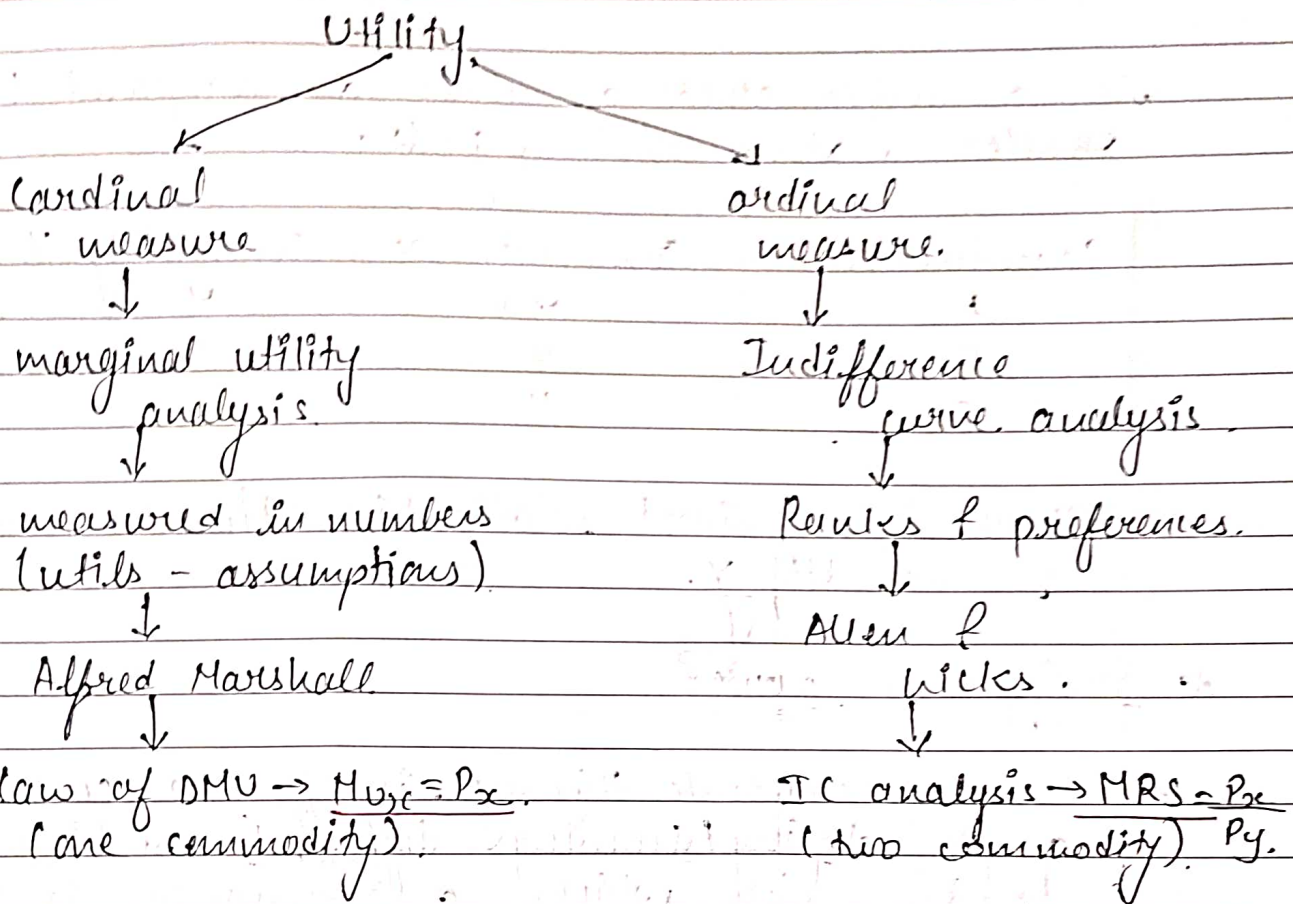 Utility
Cardinal
measure
↓
marginal utility
analysis.
↓
measured in numbers
(utils - assumptions)
↓
Alfred Marshall
↓
Law of DMU → MUx = Px.
(one commodity).
ordinal
measure.
↓
Indifference
curve analysis.
↓
Ranks & preferences.
↓
Allen &
hicks.
↓
IC analysis → MRS = Px
(two commodity) Py.